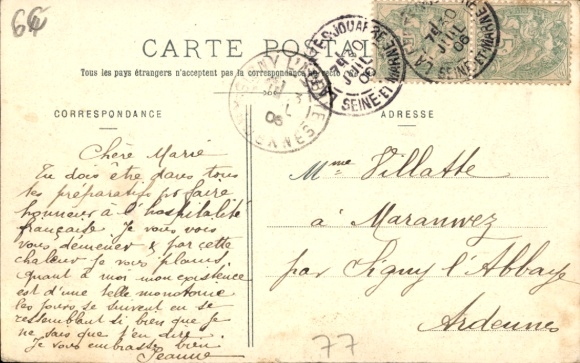 64
CARTE POSTALE
Tous les pays étrangers n'acceptent pas la correspondance
CORRESPONDANCE
ADRESSE
Chère Marie
Tu dois être dans tous
les préparatifs pr faire
honneur à l'hospitalité
française. Je vous vois
vous démener & par cette
chaleur je vous plains.
Quant à moi mon existence
est d'une telle monotonie
les jours se suivent en se
ressemblant si bien que je
ne sais que t'en dire.
Je vous embrasse bien
Jeanne
Mme Villatte
à Maranwez
par Signy l'Abbaye
Ardennes
77
JOUARRE
7 30
JUIL
06
SEINE-ET-MARNE
LA
7 30
JUIL
06
SEINE-ET-MARNE
SIGNY L'ABBAYE
06
ARDENNES